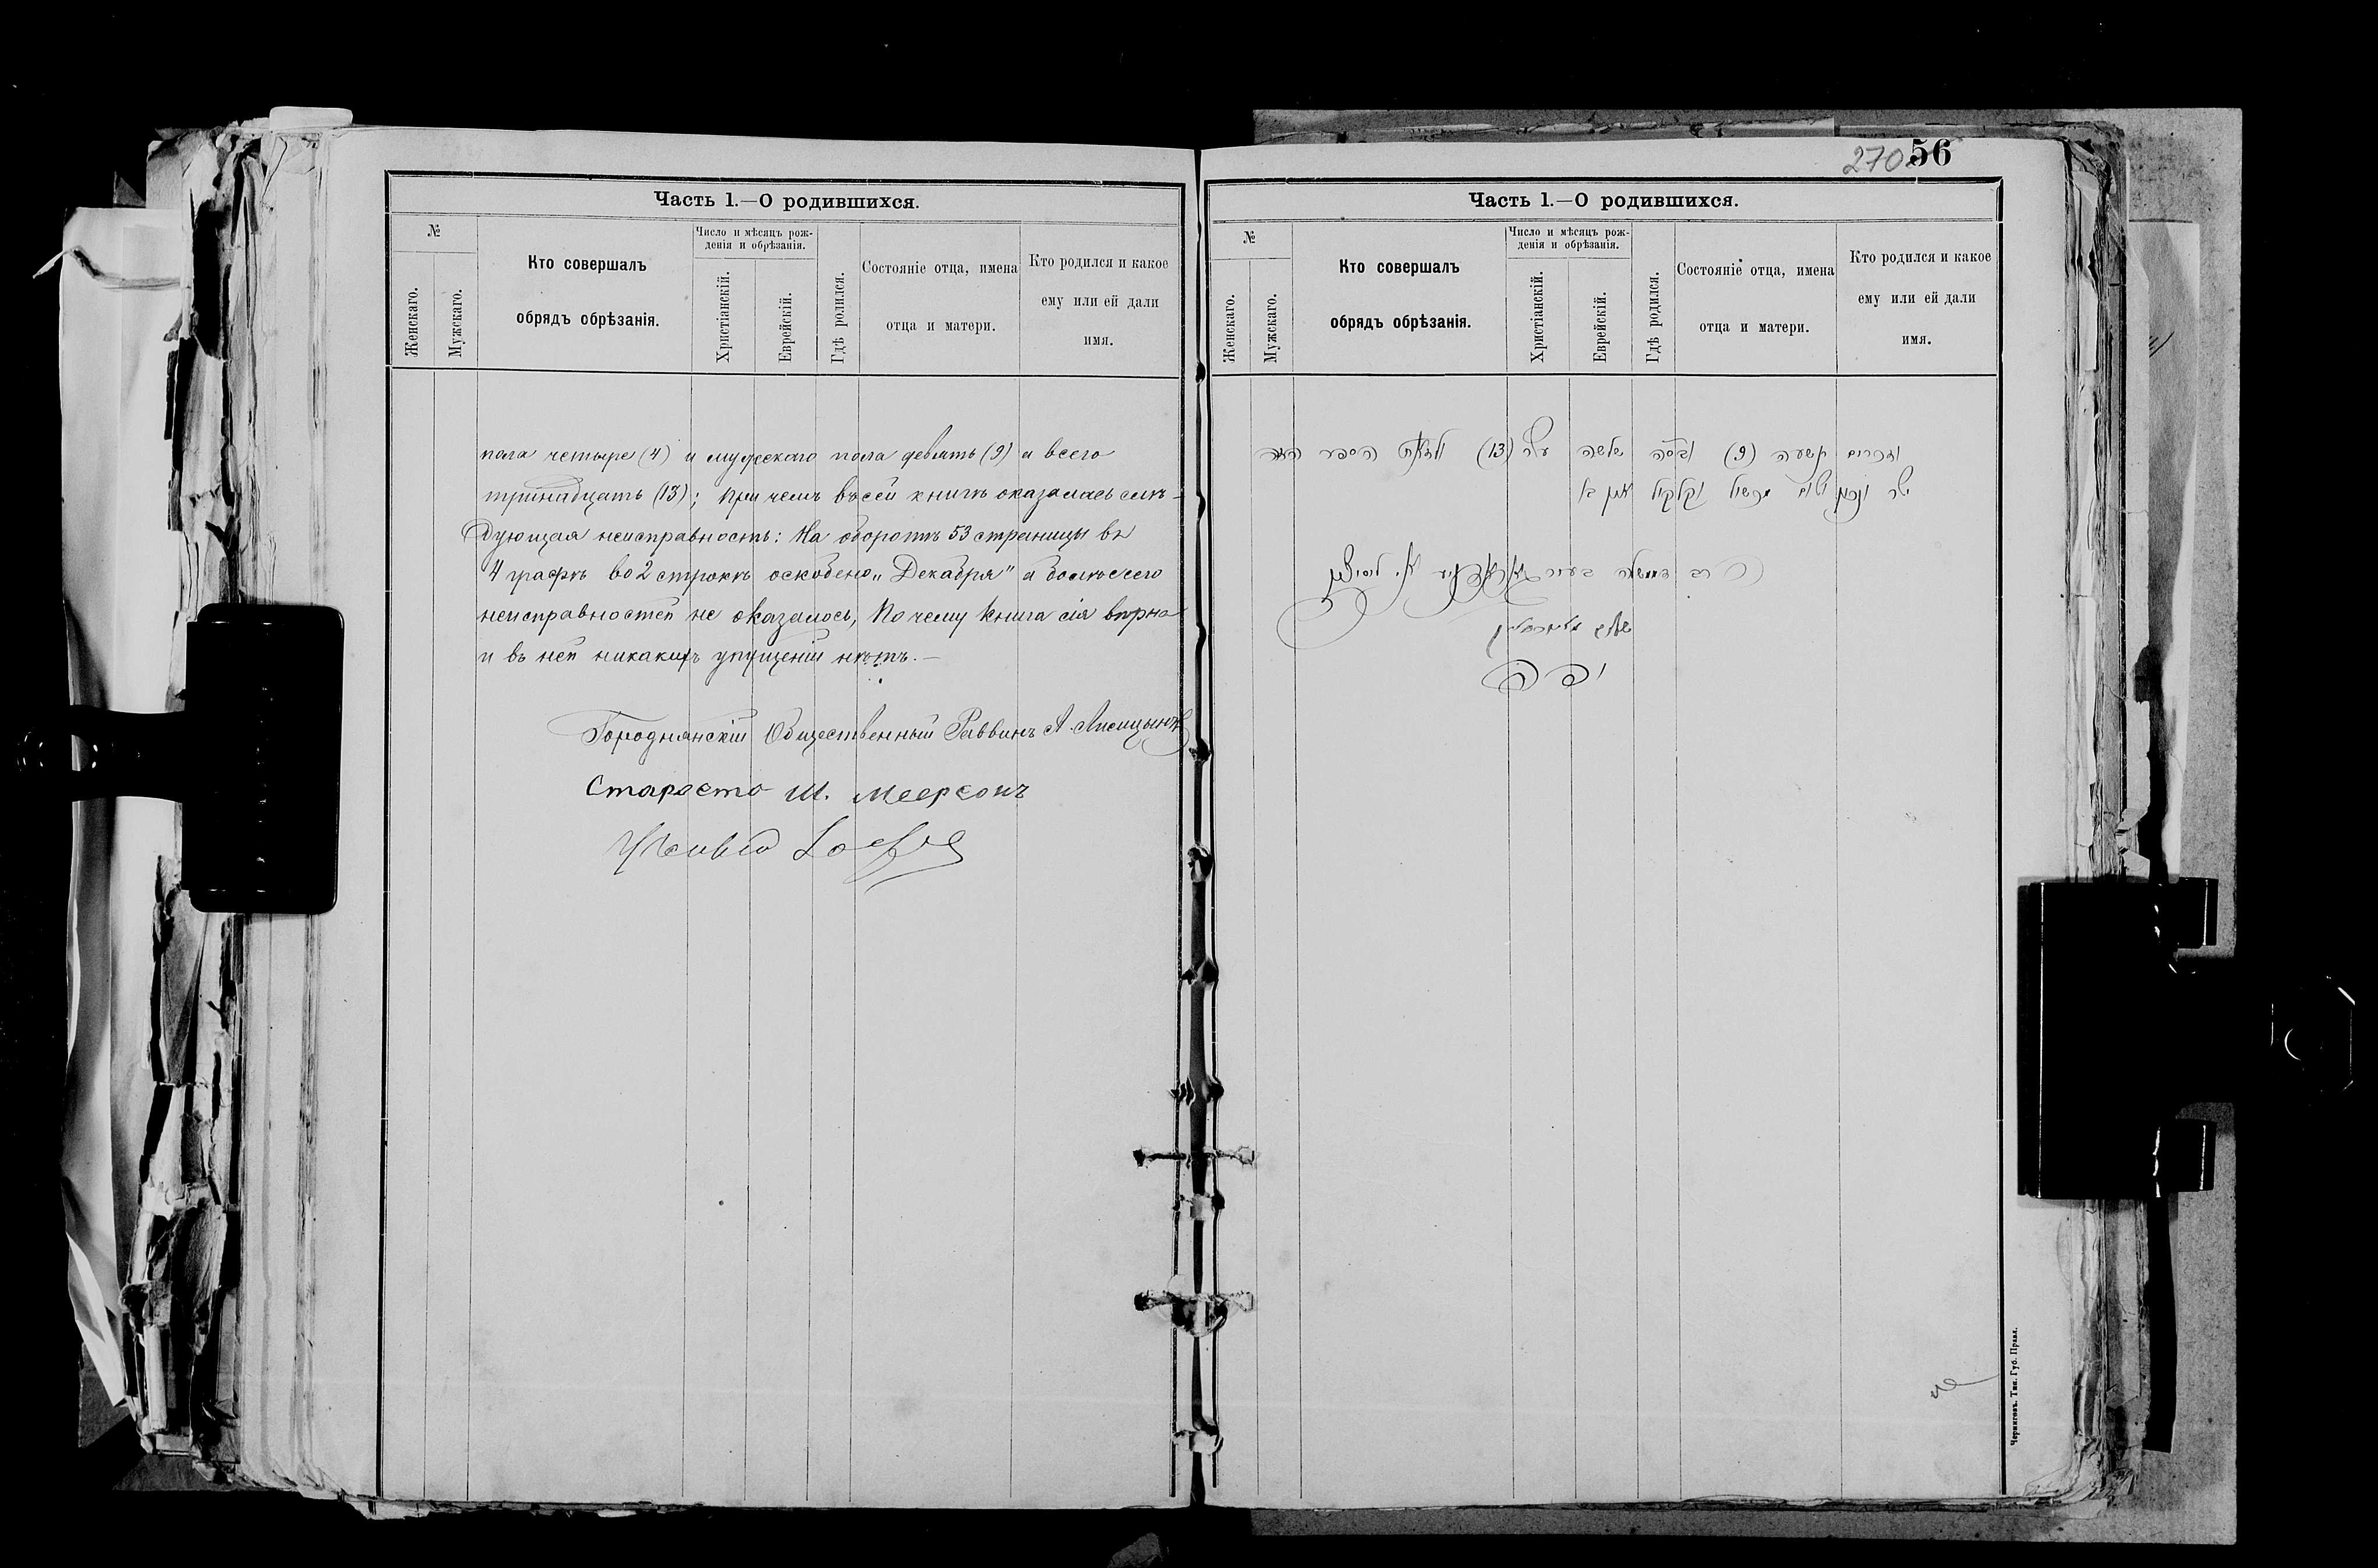 Часть 1.—О родившихся.
№
Женскаго.
Мужскаго.
Кто совершалъ
обрядъ обрѣзанія.
Число и мѣсяцъ рож-
денія и обрѣзанія.
Христіанскій.
Еврейскій.
Гдѣ родился.
Состояніе отца, имена
отца и матери.
Кто родился и какое
ему или ей дали
имя.
пола четыре (4) и мужескаго пола девять (9) а всего
тринадцать (13); При чемъ въ сей книгѣ оказалась слѣ-
дующая неисправность: На оборотѣ 53 страницы въ
4 графѣ во 2 строкѣ оскоблено „Декабря" а более сего
неисправностей не оказалось, По чему книга сія вѣрна
и въ ней никакихъ упущеній нѣтъ.—
Городнянскій Общественный Раввинъ А. Лисицынъ
Староста Ш. Меерсонъ
270 56
Часть 1.—О родившихся.
№
Женскаго.
Мужскаго.
Кто совершалъ
обрядъ обрѣзанія.
Число и мѣсяцъ рож-
денія и обрѣзанія.
Христіанскій.
Еврейскій.
Гдѣ родился.
Состояніе отца, имена
отца и матери.
Кто родился и какое
ему или ей дали
имя.
וזכרים תשעה (9) ובס״ה שלשה עשר (13) הספר הזה
ישר ונכון ושום מכשול וקלקול אין בו
הרב בעיר
Черниговъ. Тип. Губ. Правл.